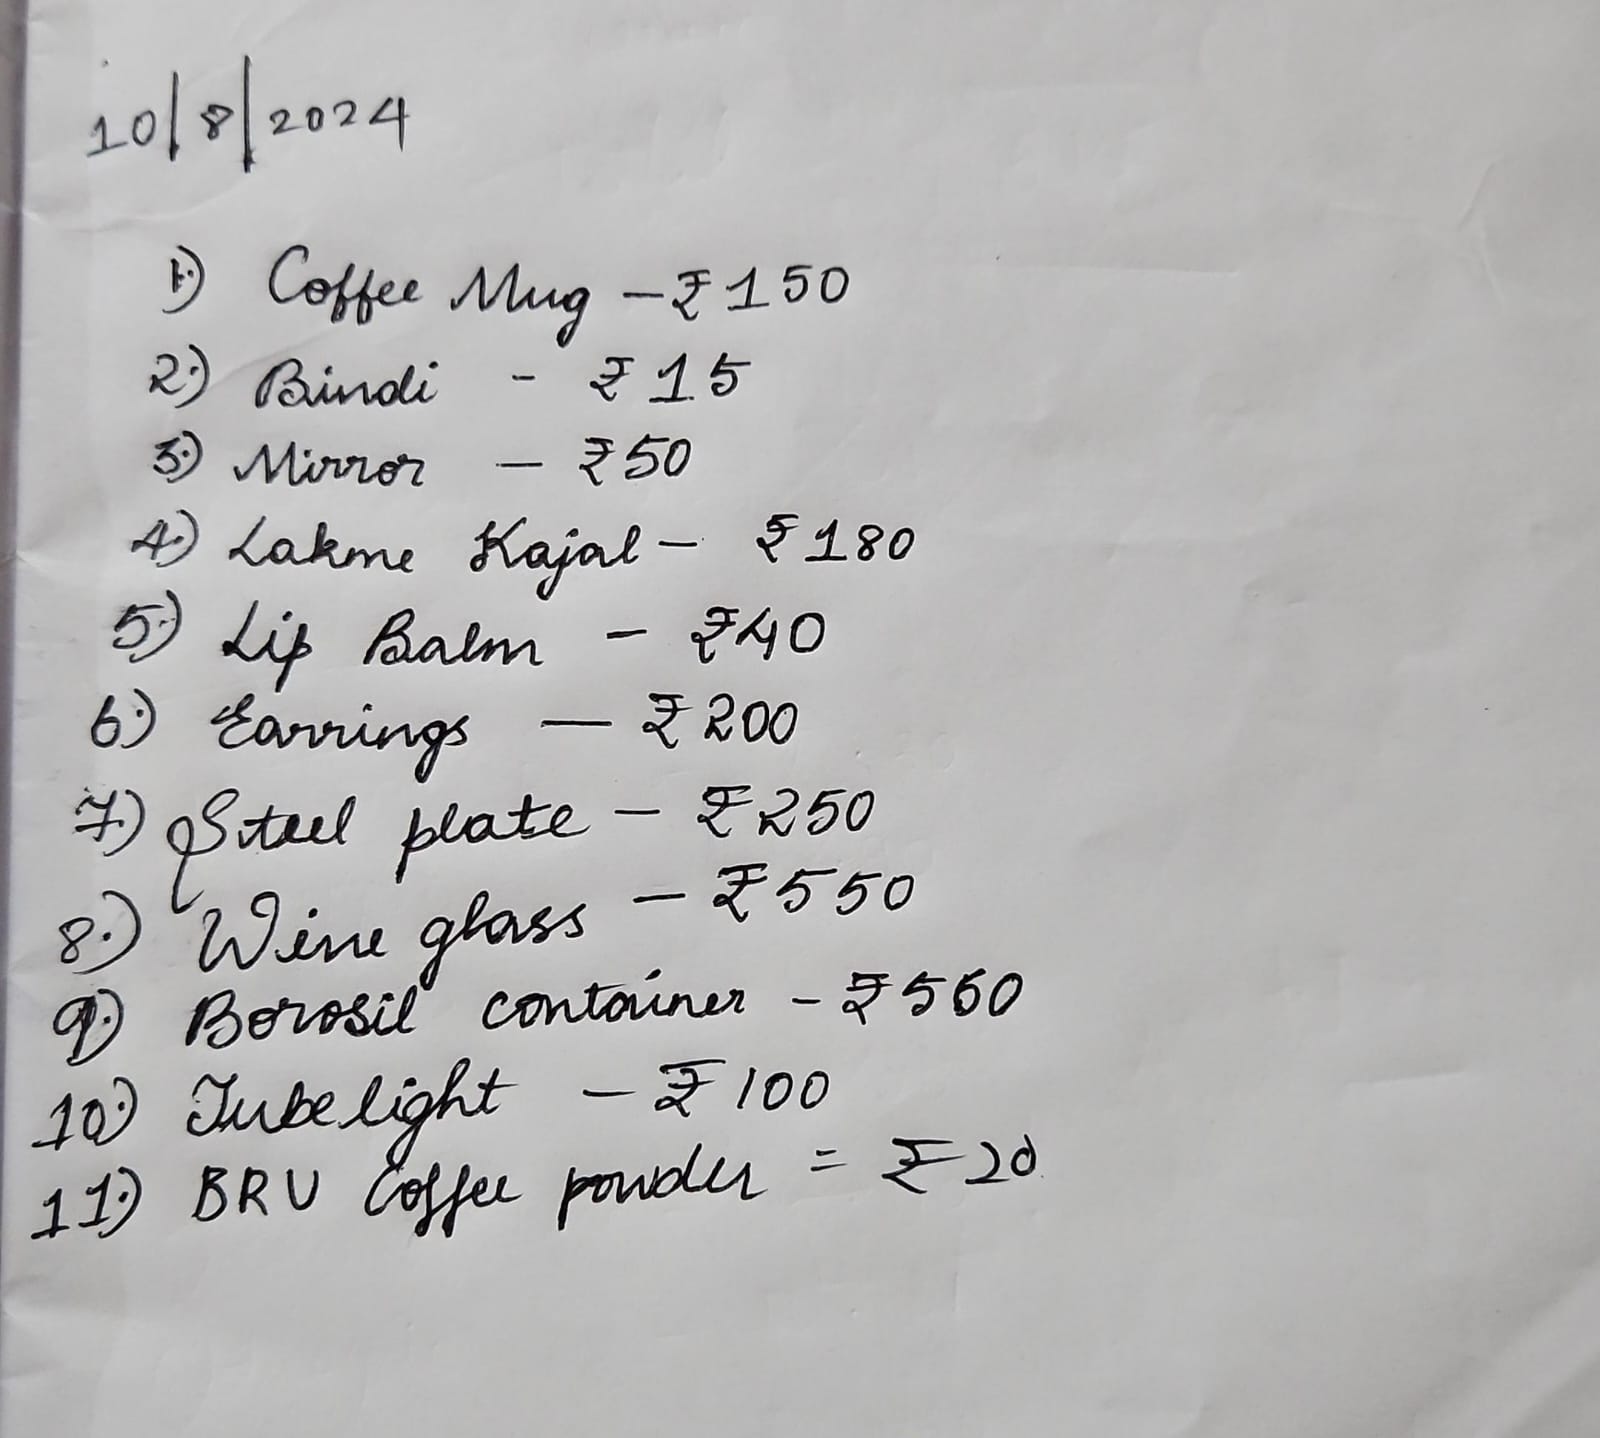 10/8/2024
1.) Coffee Mug - ₹150
2.) Bindi - ₹15
3.) Mirror - ₹50
4.) Lakme Kajal - ₹180
5.) Lip Balm - ₹40
6.) Earrings - ₹200
7.) Steel plate - ₹250
8.) Wine glass - ₹550
9.) Borosil container - ₹560
10.) Tubelight - ₹100
11.) BRU Coffee powder = ₹20